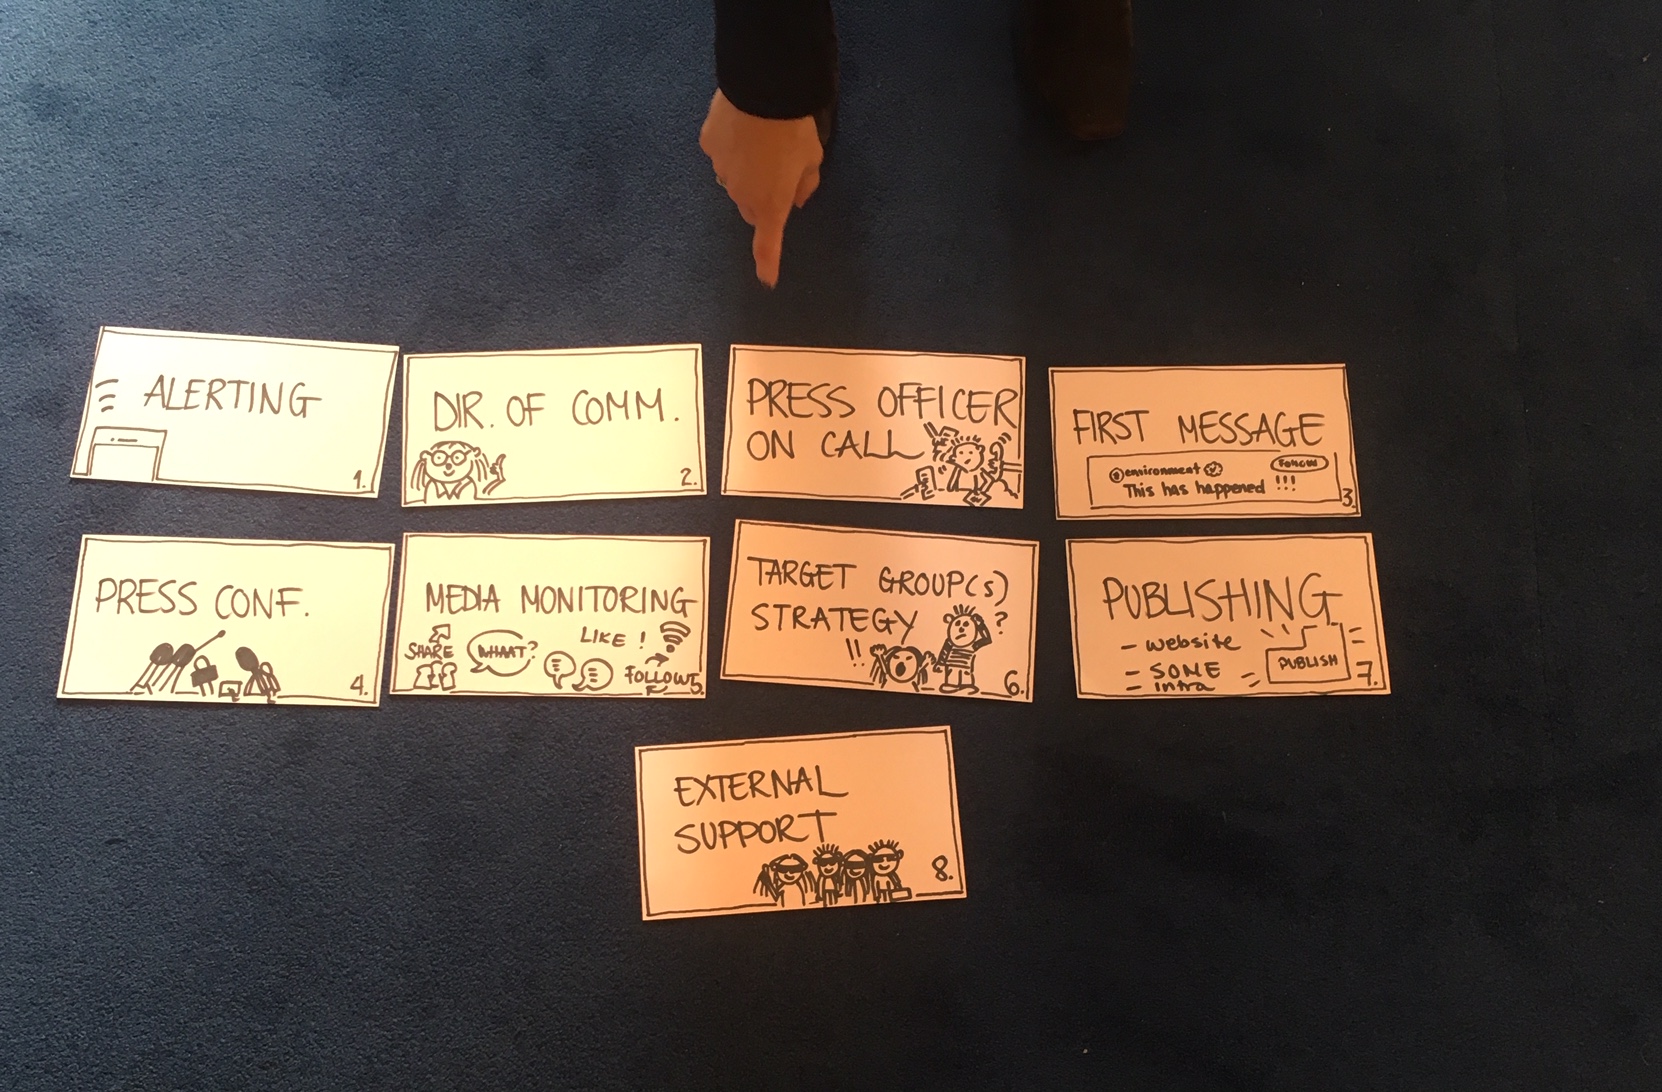 ALERTING
1.
DIR. OF COMM.
2.
PRESS OFFICER
ON CALL
FIRST MESSAGE
@environment
Follow
This has happened !!!
3.
PRESS CONF.
4.
MEDIA MONITORING
LIKE !
SHARE
WHAAT?
FOLLOW
5.
TARGET GROUP(S)
STRATEGY
?
!!
6.
PUBLISHING
- website
- SOME
- intra
PUBLISH
7.
EXTERNAL
SUPPORT
8.